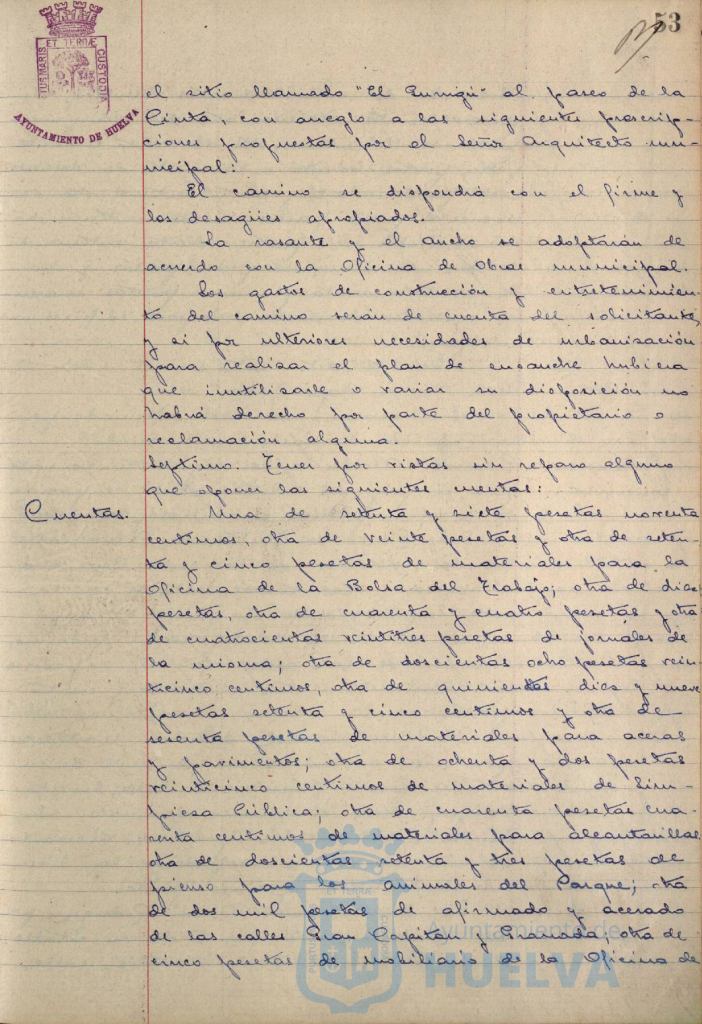 53
PORTUS MARIS ET TERRÆ CUSTODIA
AYUNTAMIENTO DE HUELVA
el sitio llamado "El" al paseo de la
Cinta, con arreglo a las siguientes prescrip-
ciones propuestas por el Señor Arquitecto mu-
nicipal:
El camino se dispondrá con el firme y
los desagües apropiados.
La rasante y el ancho se adoptarán de
acuerdo con la Oficina de Obras municipal.
Los gastos de construcción y entretenimien-
to del camino serán de cuenta del solicitante,
y si por ulteriores necesidades de urbanización
para realizar el plan de ensanche hubiera
que inutilizarle o variar su disposición no
habrá derecho por parte del propietario o
reclamación alguna.
Septimo. Tener por vistas sin reparo alguno
que oponer las siguientes cuentas:
Cuentas.
Una de setenta y siete pesetas noventa
centimos, otra de veinte pesetas y otra de seten-
ta y cinco pesetas de materiales para la
Oficina de la Bolsa del Trabajo; otra de diez
pesetas, otra de cuarenta y cuatro pesetas y otra
de cuatrocientas veintitres pesetas de jornales de
la misma; otra de doscientas ocho pesetas vein-
ticinco centimos, otra de quinientas diez y nueve
pesetas setenta y cinco centimos y otra de
sesenta pesetas de materiales para aceras
y pavimentos; otra de ochenta y dos pesetas
veinticinco centimos de materiales de Lim-
pieza Pública; otra de cuarenta pesetas cua-
renta centimos de materiales para alcantarillas,
otra de doscientas setenta y tres pesetas de
pienso para los animales del Parque; otra
de dos mil pesetas de afirmado y acerado
de las calles Gran Capitan y Granada; otra de
cinco pesetas de mobiliario de la Oficina de
Ayuntamiento de
HUELVA